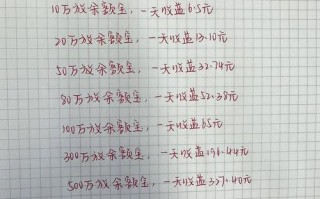 10万放余额宝，一天收益6.5元
20万放余额宝，一天收益13.10元
50万放余额宝，一天收益32.74元
80万放余额宝，一天收益52.38元
100万放余额宝，一天收益65元
300万放余额宝，一天收益196.44元
500万放余额宝，一天收益327.40元